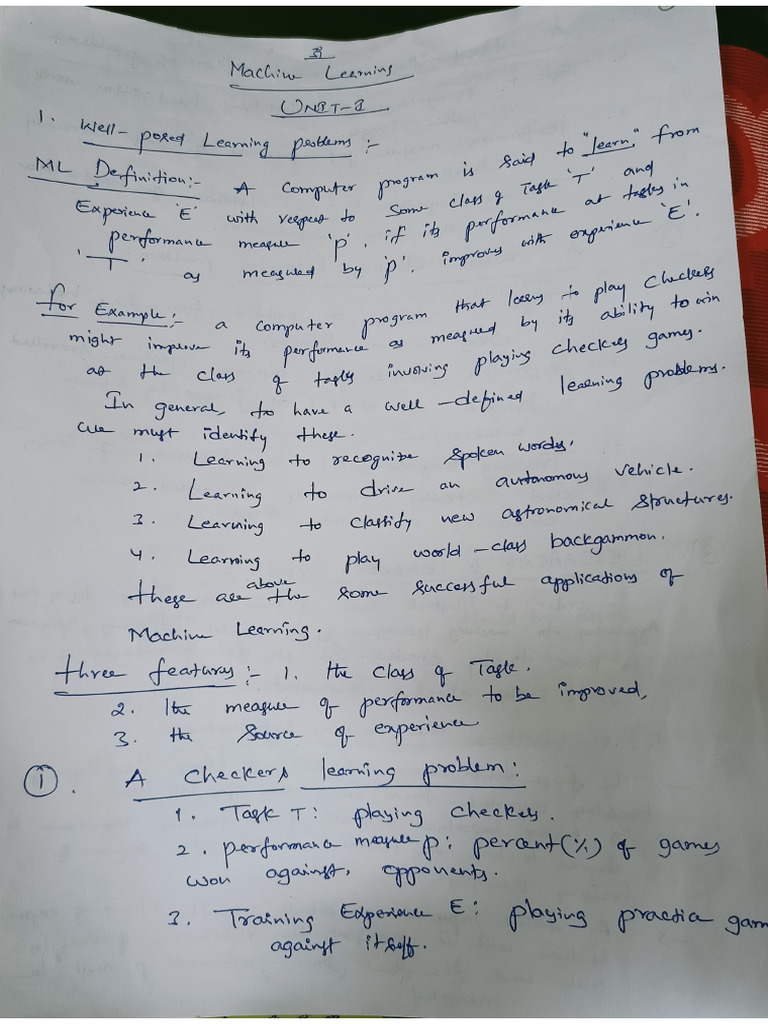 ॐ
Machine Learning
UNIT-I
1. Well-posed Learning problems:-
ML Definition:- A Computer program is said to "learn" from
Experience 'E' with respect to Some class of Task 'T' and
performance measure 'p'. if its performance at tasks in
'T' as measured by 'p'. improves with experience 'E'.
for Example:- a computer program that learns to play Checkers
might improve its performance as measured by its ability to win
at the class of tasks involving playing checkers games.
In general, to have a well-defined learning problems.
we must identify these.
1. Learning to recognize spoken words.
2. Learning to drive an autonomous vehicle.
3. Learning to classify new astronomical structures.
4. Learning to play world-class backgammon.
these are the above some successful applications of
Machine Learning.
three features:- 1. the class of Task.
2. the measure of performance to be improved,
3. the source of experience
①. A checkers learning problem:
1. Task T: playing checkers.
2. performance measure p: percent(%) of games
won against, opponents.
3. Training Experience E: playing practice gam
against itself.